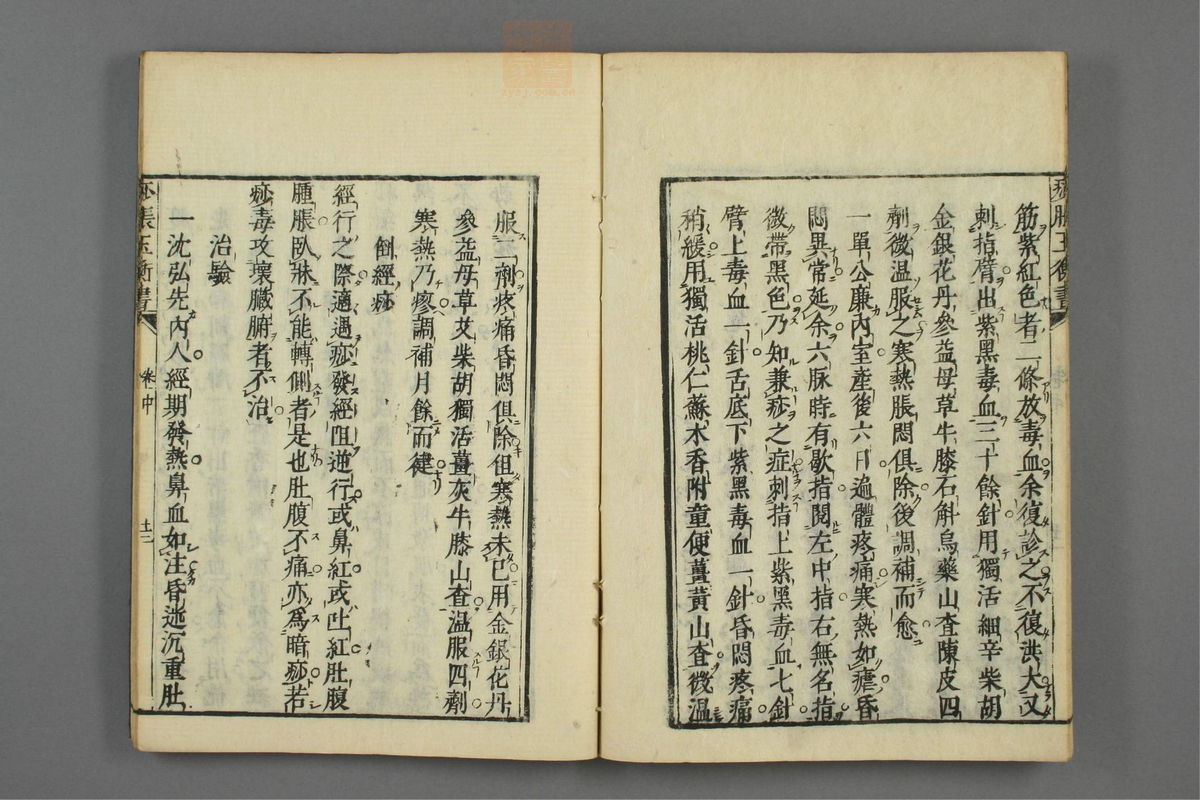 筋紫紅色者二條放毒血余復診之不復洪大又
刺指臂出紫黑毒血三十餘針用獨活細辛柴胡
金銀花丹參益母草牛膝石斛烏藥山查陳皮四
劑微温服之寒熱脹悶俱除後調補而愈
一單公廉內室產後六日遍體疼痛寒熱如瘧昏
悶異常延余六脉時有歇指閱左中指右無名指
微帶黑色乃知兼痧之症刺指上紫黑毒血七針
臂上毒血一針舌底下紫黑毒血一針昏悶疼痛
稍緩用獨活桃仁蘇木香附童便薑黃山查微温
服一劑疼痛昏悶俱除但寒熱未已用金銀花丹
參益母草艾柴胡獨活薑灰牛膝山查温服四劑
寒熱乃瘳調補月餘而健
倒經痧
經行之際適遇痧發經阻逆行或鼻紅或吐紅肚腹
腫脹臥牀不能轉側者是也肚腹不痛亦爲暗痧若
痧毒攻壞臟腑者不治
治驗
一沈弘先內人經期發熱鼻血如注昏迷沉重肚
痧脹玉衡書
卷中
十二